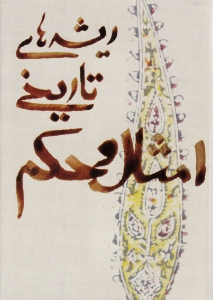 ریشه‌های
تاریخی
امثال و حکم